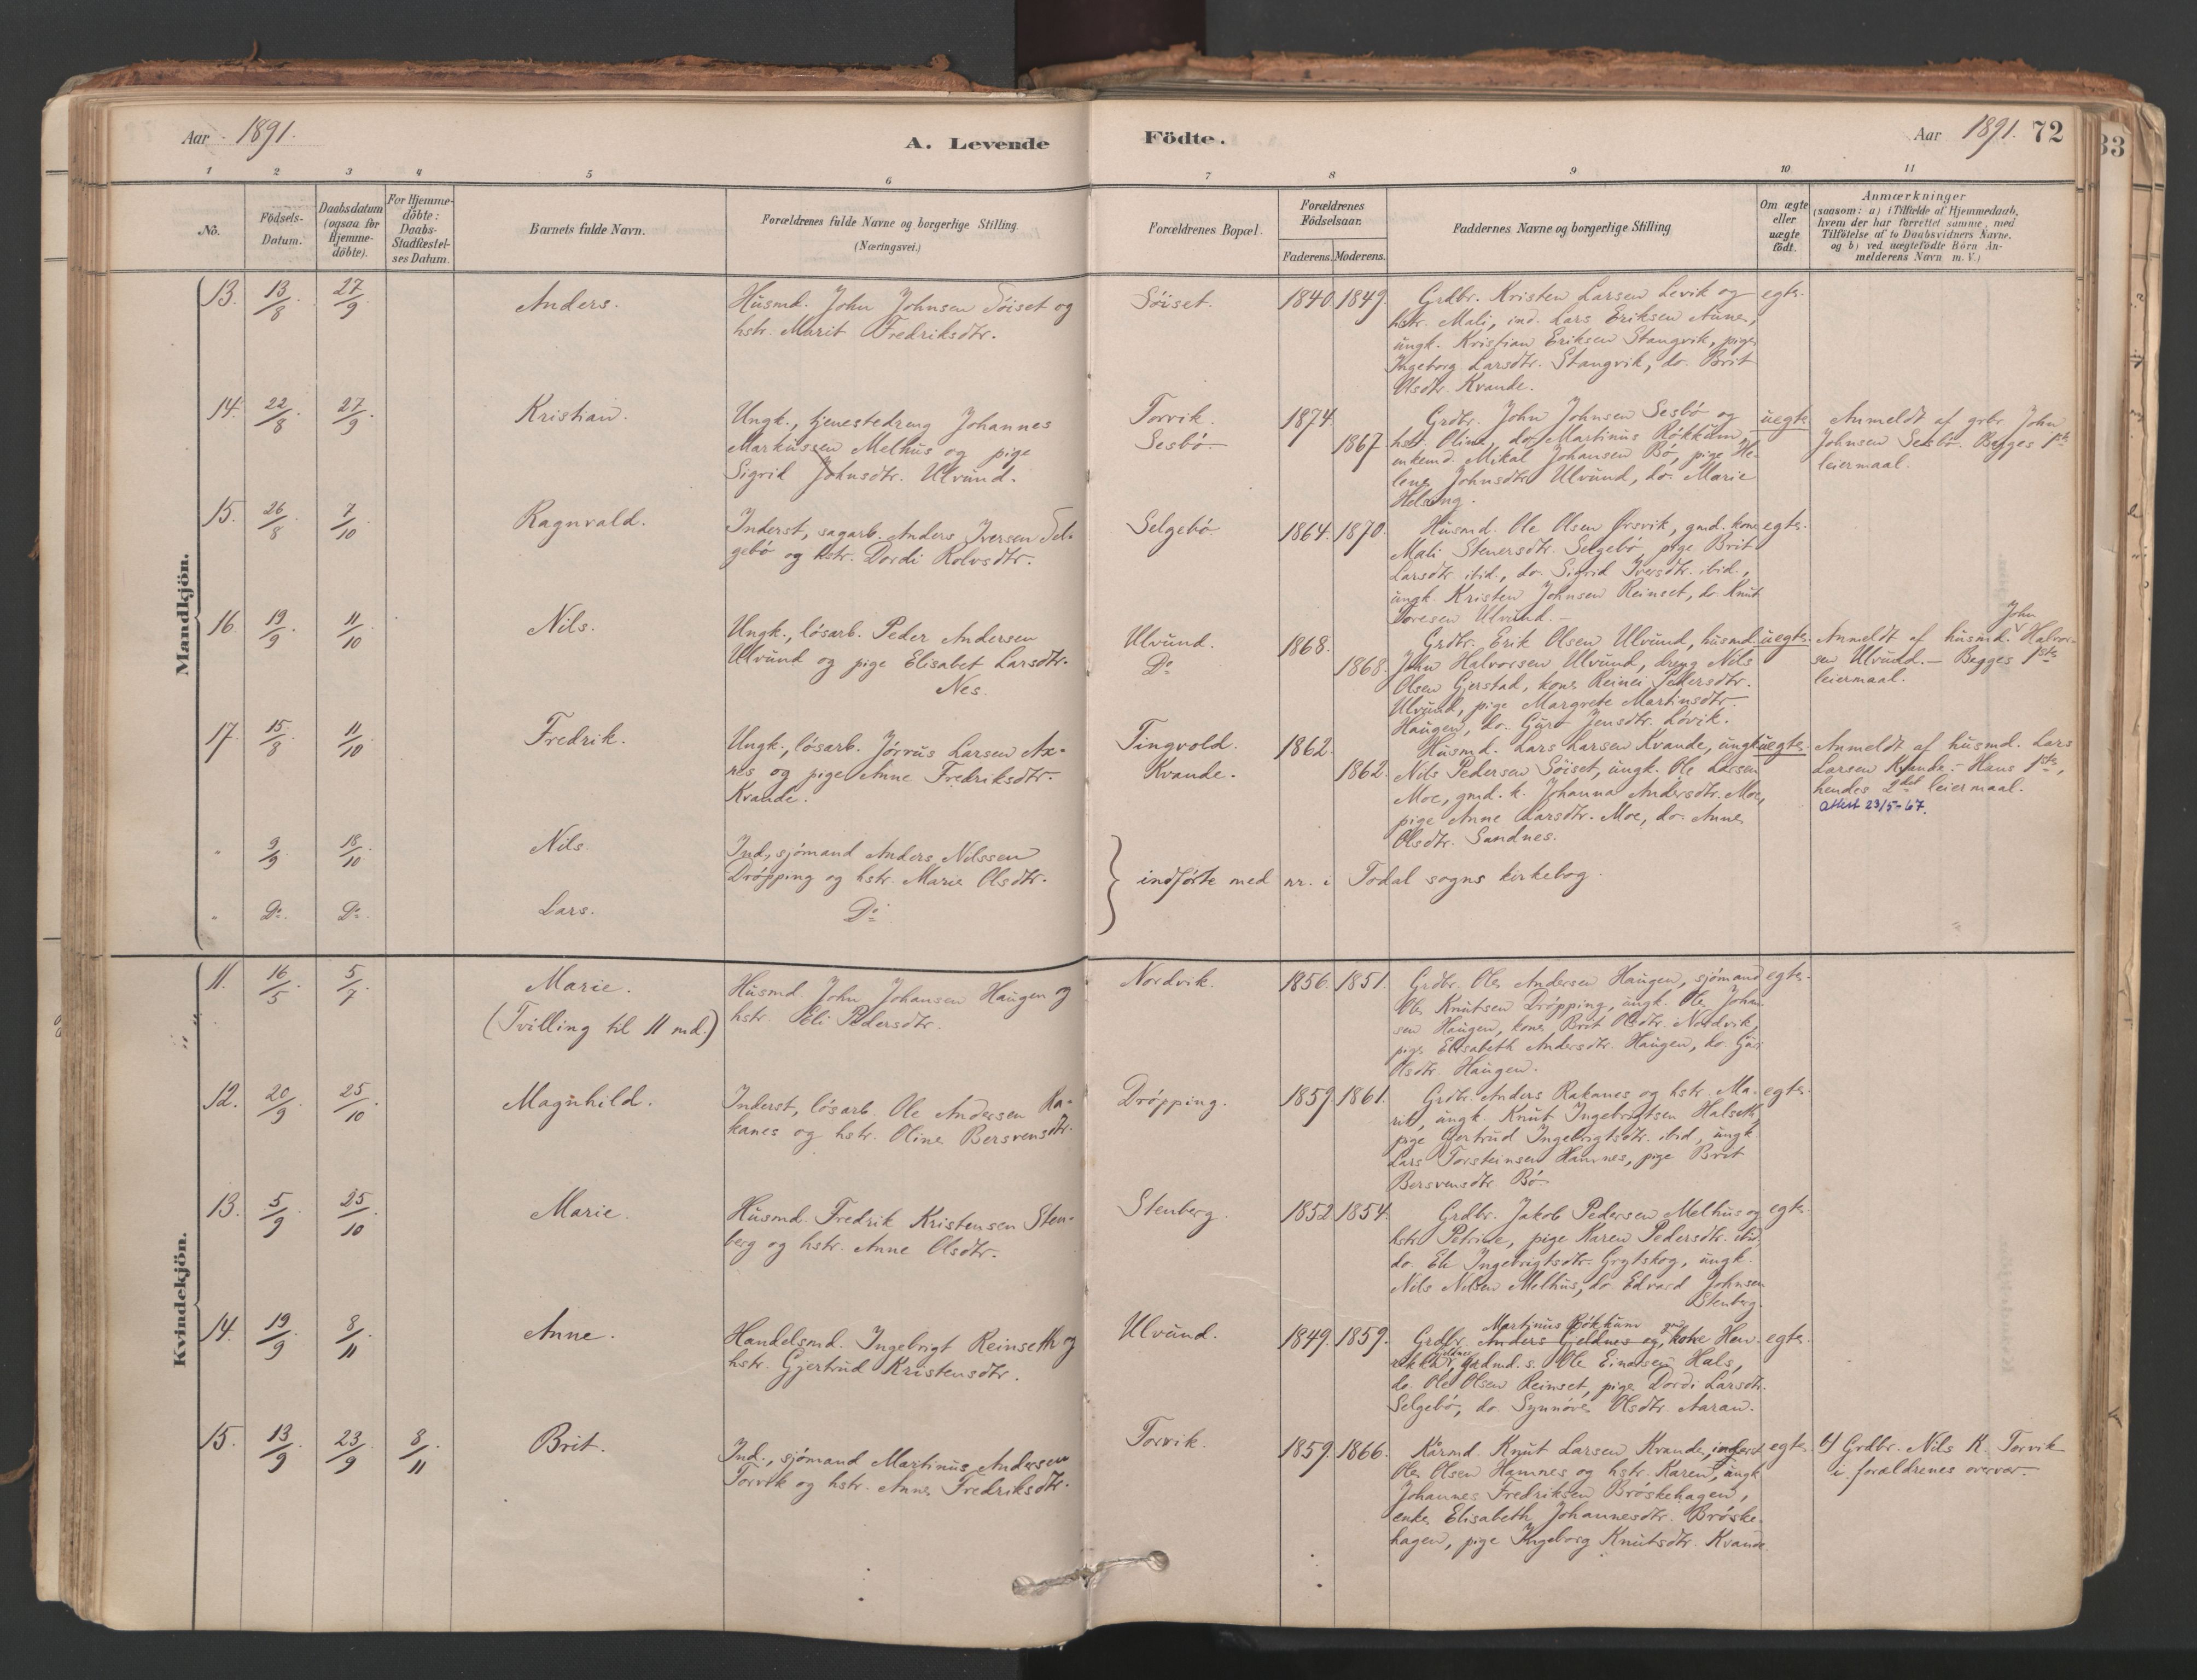 Aar 1891.
A. Levende
Födte.
Aar 1891. 72
33
1
2
3
4
5
6
7
8
9
10
11
No.
Födsels-
Datum.
Daabsdatum
(ogsaa for
Hjemme-
döbte).
For Hjemme-
döbte:
Daabs-
Stadfæstel-
ses Datum.
Barnets fulde Navn.
Forældrenes fulde Navne og borgerlige Stilling
(Næringsvei.)
Forældrenes Bopæl.
Forældrenes
Födselsaar.
Faderens. Moderens.
Faddernes Navne og borgerlige Stilling
Om ægte
eller
uægte
födt.
Anmærkninger
(saasom: a) i Tilfælde af Hjemmedaab,
hvem der har forrettet samme, med
Tilföielse af to Daabsvidners Navne,
og b) ved uægtefödte Börn An-
melderens Navn m. V.)
Mandkjön.
13. 13/8. 27/9
Anders.
Husmd. John Johnsen Söiset og
hstr. Marit Fredriksdtr.
Söiset.
1840. 1849.
Grdbr. Kristen Larsen Levik og
hstr. Mali, ind. Lars Eriksen Aune,
ungk. Kristian Eriksen Stangvik, pige
Ingeborg Larsdtr. Stangvik, do. Brit
Olsdtr. Kvande.
egte.
14. 22/8. 27/9.
Kristian.
Ungk., tjenestedreng Johannes
Markussen Melhus og pige
Sigrid Johnsdtr. Ulvund.
Torvik.
Sesbö.
1874.
1867
Grdbr. John Johnsen Sesbö og
hstr. Oline, do. Martinus Rökkum,
enkemd. Mikal Johansen Bö, pige He-
lene Johnsdtr Ulvund, do. Marie
Halsing.
uegte.
Anmeldt af grbr. John
Johnsen Sesbö. Begges 1ste
leiermaal.
15. 26/8. 7/10
Ragnvald.
Inderst, sagarb. Anders Iversen Sel-
gebö og hstr. Dordi Rolvsdtr.
Selgebö.
1864. 1870.
Husmd. Ole Olsen Örsvik, gmd. kone
Mali Stenersdtr. Selgebö, pige Brit
Larsdtr. ibid., do. Sigrid Iversdtr. ibid.,
ungk. Kristen Johnsen Reinset, do. Knut
Toresen Ulvund.
egte.
16. 19/9. 11/10
Nils.
Ungk., lösarb. Peder Andersen
Ulvund og pige Elisabet Larsdtr.
Nes.
Ulvund.
Do
1868.
1868.
Grdbr. Erik Olsen Ulvund, husmd.
John Halvorsen Ulvund, dreng Nils
Olsen Gjerstad, kone Reinei Pedersdtr.
Ulvund, pige Margrete Martinsdtr.
Haugen, do. Guro Jensdtr. Lövik.
uegte.
John
Anmeldt af husmd. Halvor-
sen Ulvund. – Begges 1ste
leiermaal.
17. 15/8. 11/10
Fredrik.
Ungk., lösarb. Jörrus Larsen Ax-
nes og pige Anne Fredriksdtr.
Kvande.
Tingvold.
Kvande.
1862.
1862.
Husmd. Lars Larsen Kvande, ungk.
Nils Pedersen Söiset, ungk. Ole Larsen
Moe, gmd. k. Johanna Andersdtr. Moe,
pige Anne Larsdtr. Moe, do. Anne
Olsdtr. Sandnes.
uegte.
Anmeldt af husmd. Lars
Larsen Kvande. – Hans 1ste,
hendes 2det leiermaal.
Attest 23/5-67.
" 9/9 18/10
Nils.
Ind., sjömand Anders Nilssen
Dröpping og hstr. Marie Olsdtr.
indförte med nr. i Todal sogns kirkebog.
" Do. Do.
Lars.
Do
Kvindekjön.
11. 16/5. 5/7
Marie.
(Tvilling til 11 md.)
Husmd. John Johansen Haugen og
hstr. Eli Pedersdtr.
Nordvik.
1856. 1851.
Grdbr. Ole Andersen Haugen, sjömand
Ole Knutsen Dröpping, ungk. Ole Johan-
sen Haugen, kone Brit Olsdtr. Nordvik,
pige Elisabeth Andersdtr. Haugen, do. Guri
Olsdtr. Haugen.
egte.
12. 20/9. 25/10.
Magnhild.
Inderst, lösarb. Ole Andersen Ra-
kanes og hstr. Oline Bersvensdtr.
Dröpping.
1859. 1861.
Grdbr. Anders Rakanes og hstr. Ma-
rit, ungk. Knut Ingebrigtsen Halseth,
pige Gjertrud Ingebrigtsdtr. ibid, ungk.
Lars Torsteinsen Hamnes, pige Brit
Bersvensdtr. Bö.
egte.
13. 5/9. 25/10
Marie.
Husmd. Fredrik Kristensen Sten-
berg og hstr. Anne Olsdtr.
Stenberg.
1852. 1854.
Grdbr. Jakob Pedersen Melhus og
hstr Petrine, pige Karen Pedersdtr. ibid,
do. Eli Ingebrigtsdtr. Grytskog, ungk.
Nils Nilsen Melhus, do. Edvard Johnsen
Stenberg.
egte.
14. 19/9. 8/11.
Anne.
Handelsmd. Ingebrigt Reinseth og
hstr. Gjertrud Kristensdtr.
Ulvund.
1849. 1859.
Martinus Rökkum
Grdbr. Anders Gjeldnes og kone Hen-
rikka, grdmd. s. Ole Einarsen Hals,
do. Ole Olsen Reinset, pige Dordi Larsdtr.
Selgebö, do. Synnöve Olsdtr. Aaran.
egte.
15. 13/9. 23/9. 8/11.
Brit.
Ind., sjömand Martinus Andersen
Torvik og hstr. Anne Fredriksdtr.
Torvik.
1859. 1866.
Kårmd. Knut Larsen Kvande, inderst
Ole Olsen Hamnes og hstr. Karen, ungk.
Johannes Fredriksen Bröskehagen,
enke Elisabeth Johannesdtr. Bröske-
hagen, pige Ingeborg Knutsdtr. Kvande.
egte.
Grdbr. Nils K. Torvik
i forældrenes overvær.